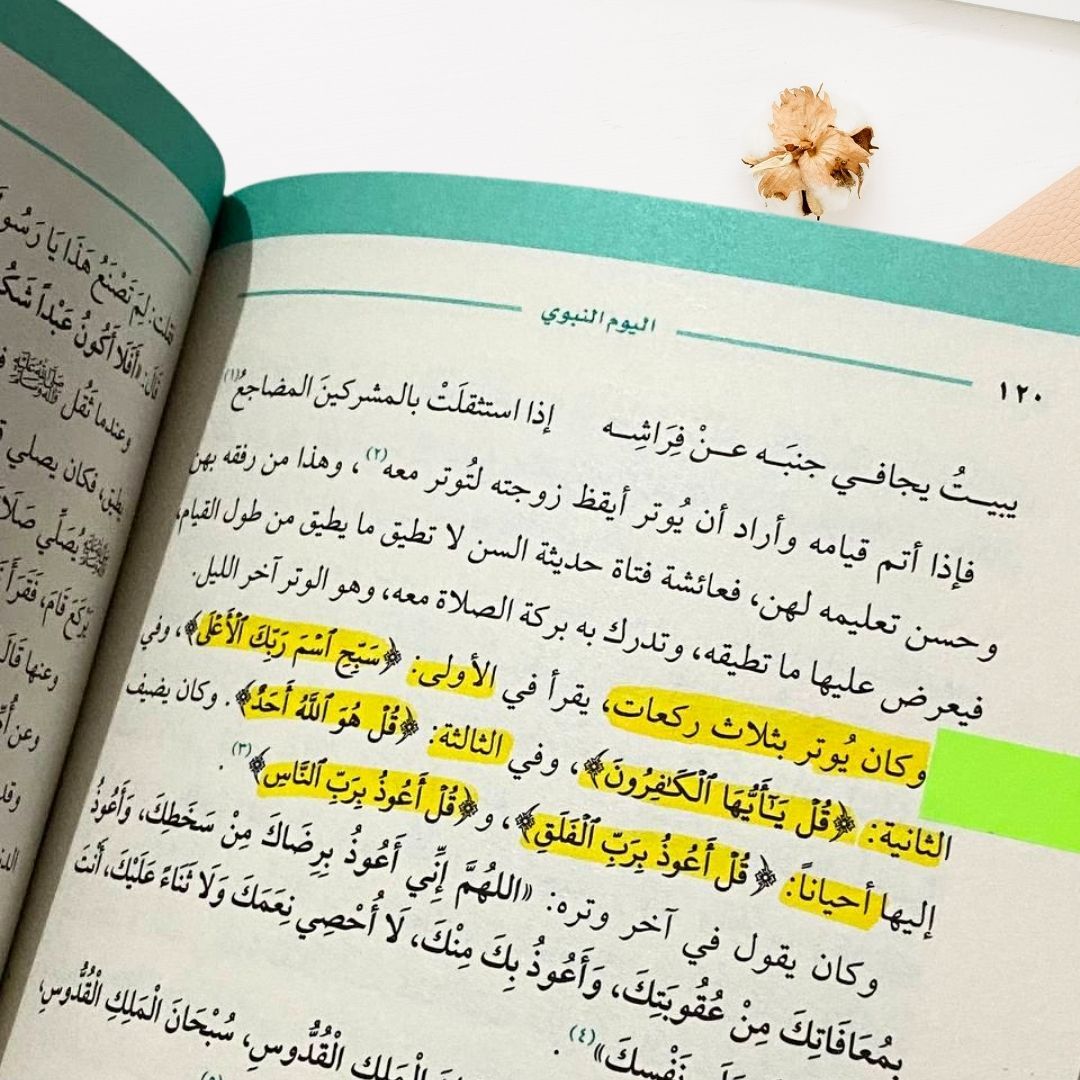 اليوم النبوي
١٢٠
يبيتُ يجافي جنبَه عنْ فِرَاشِه إذا استثقلَتْ بالمشركينَ المضاجعُ(١)
فإذا أتم قيامه وأراد أن يُوتر أيقظ زوجته لتُوتر معه(٢)، وهذا من رفقه بهن
وحسن تعليمه لهن، فعائشة فتاة حديثة السن لا تطيق ما يطيق من طول القيام،
فيعرض عليها ما تطيقه، وتدرك به بركة الصلاة معه، وهو الوتر آخر الليل.
وكان يُوتر بثلاث ركعات، يقرأ في الأولى: ﴿سَبِّحِ ٱسْمَ رَبِّكَ ٱلْأَعْلَى﴾، وفي
الثانية: ﴿قُلْ يَٰٓأَيُّهَا ٱلْكَٰفِرُونَ﴾، وفي الثالثة: ﴿قُلْ هُوَ ٱللَّهُ أَحَدٌ﴾. وكان يضيف
إليها أحياناً: ﴿قُلْ أَعُوذُ بِرَبِّ ٱلْفَلَقِ﴾، و﴿قُلْ أَعُوذُ بِرَبِّ ٱلنَّاسِ﴾(٣).
وكان يقول في آخر وتره: «اللهُمَّ إِنِّي أَعُوذُ بِرِضَاكَ مِنْ سَخَطِكَ، وَأَعُوذُ
بِمُعَافَاتِكَ مِنْ عُقُوبَتِكَ، وَأَعُوذُ بِكَ مِنْكَ، لَا أُحْصِي نِعَمَكَ وَلَا ثَنَاءً عَلَيْكَ، أَنْتَ
نَفْسِكَ»(٤).
الْمَلِكِ الْقُدُّوسِ، سُبْحَانَ الْمَلِكِ الْقُدُّوسِ،
قلت: لِمَ تَصْنَعُ هَذَا يَا رَسُولَ
قَالَ: «أَفَلَا أَكُونُ عَبْدًا
وعندما ثَقُل ﷺ
يطيق، فكان يصلي
ﷺ يُصَلِّي
يَرْكَعَ قَامَ، فَقَرَأَ
وعنها قَالَ
وعن